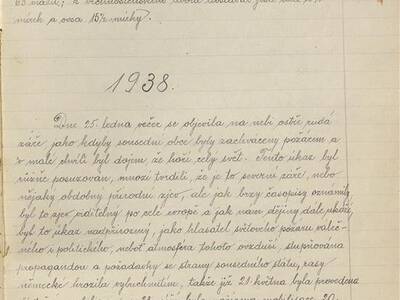 mouk a osva 15% mouky.
1938.
Dne 25. ledna večer se objevila na nebi ostře rudá
záře jako kdyby sousední obce byly zachváceny požárem a
v malé chvíli byl dojem, že hoří celý svět. Tento úkaz byl
různě posuzován, mnozí tvrdili, že je to severní záře, nebo
nějaký obdobný přírodní zjev, ale jak brzy časopisy oznámily
byl to zjev viditelný po celé evropě a jak nám dějiny dále ukáží,
byl to úkaz nadpřirozený, jako hlasatel světového požáru váleč-
ného i politického, neboť atmosféra tohoto ovzduší stupňována
propagandou a požadavky se strany sousedního státu, rasy
německé hrozila vybuchnutím, takže již 21. května byla provedena
mobilisace